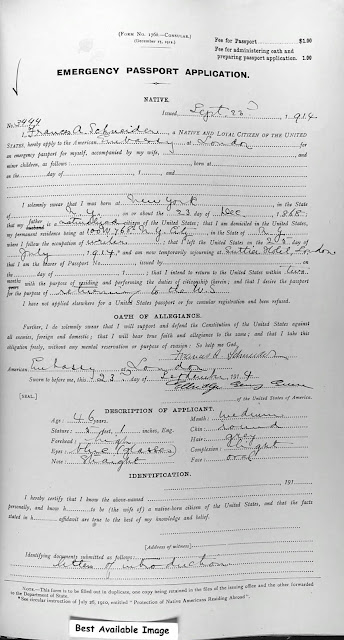 (FORM NO. 176a.—CONSULAR.)
(December 15, 1912.)
Fee for Passport $1.00
Fee for administering oath and
preparing passport application. 1.00
EMERGENCY PASSPORT APPLICATION.
NATIVE.
Issued Sept 23 1914
No. 3444
I, Frances A Schneider, A NATIVE AND LOYAL CITIZEN OF THE UNITED
STATES, hereby apply to the American Embassy at London for
an emergency passport for myself, accompanied by my wife,
and minor children, as follows: born at
on the day of , 1 , and
I solemnly swear that I was born at New York in the State
of N.Y. on or about the 23 day of Dec, 1868;
that my father is a citizen of the United States; that I am domiciled in the United States,
my permanent residence being at 100 W 76th N.Y. City, in the State of N.Y.
where I follow the occupation of writer; that I left the United States on the day of
July 1914 and am now temporarily sojourning at Hotel, London
that I am the bearer of Passport No. issued by on
the day of , 1 ; that I intend to return to the United States within two
months with the purpose of residing and performing the duties of citizenship therein; and that I desire the passport
for the purpose of returning to the U.S.
I have not applied elsewhere for a United States passport or for consular registration and been refused.
OATH OF ALLEGIANCE.
Further, I do solemnly swear that I will support and defend the Constitution of the United States against
all enemies, foreign and domestic; that I will bear true faith and allegiance to the same; and that I take this
obligation freely, without any mental reservation or purpose of evasion: So help me God.
Frances A Schneider
American Embassy at London
Sworn to before me, this 23 day of September, 1914
[SEAL.]
of the United States of America.
DESCRIPTION OF APPLICANT.
Age: 46 years. Mouth: medium
Stature: 5 feet, 1 inches, Eng. Chin: round
Forehead: high Hair: grey
Eyes: blue (glasses) Complexion:
Nose: straight Face: oval
IDENTIFICATION.
, 191
I hereby certify that I know the above-named
personally, and know h to be (the wife of) a native-born citizen of the United States, and that the facts
stated in h affidavit are true to the best of my knowledge and belief.
[Address of witness]
Identifying documents submitted as follows:
letter of introduction
NOTE.—This form is to be filled out in duplicate, one copy being retained in the files of the issuing office and the other forwarded
to the Department of State.
*See circular instruction of July 26, 1910, entitled "Protection of Native Americans Residing Abroad".
Best Available Image